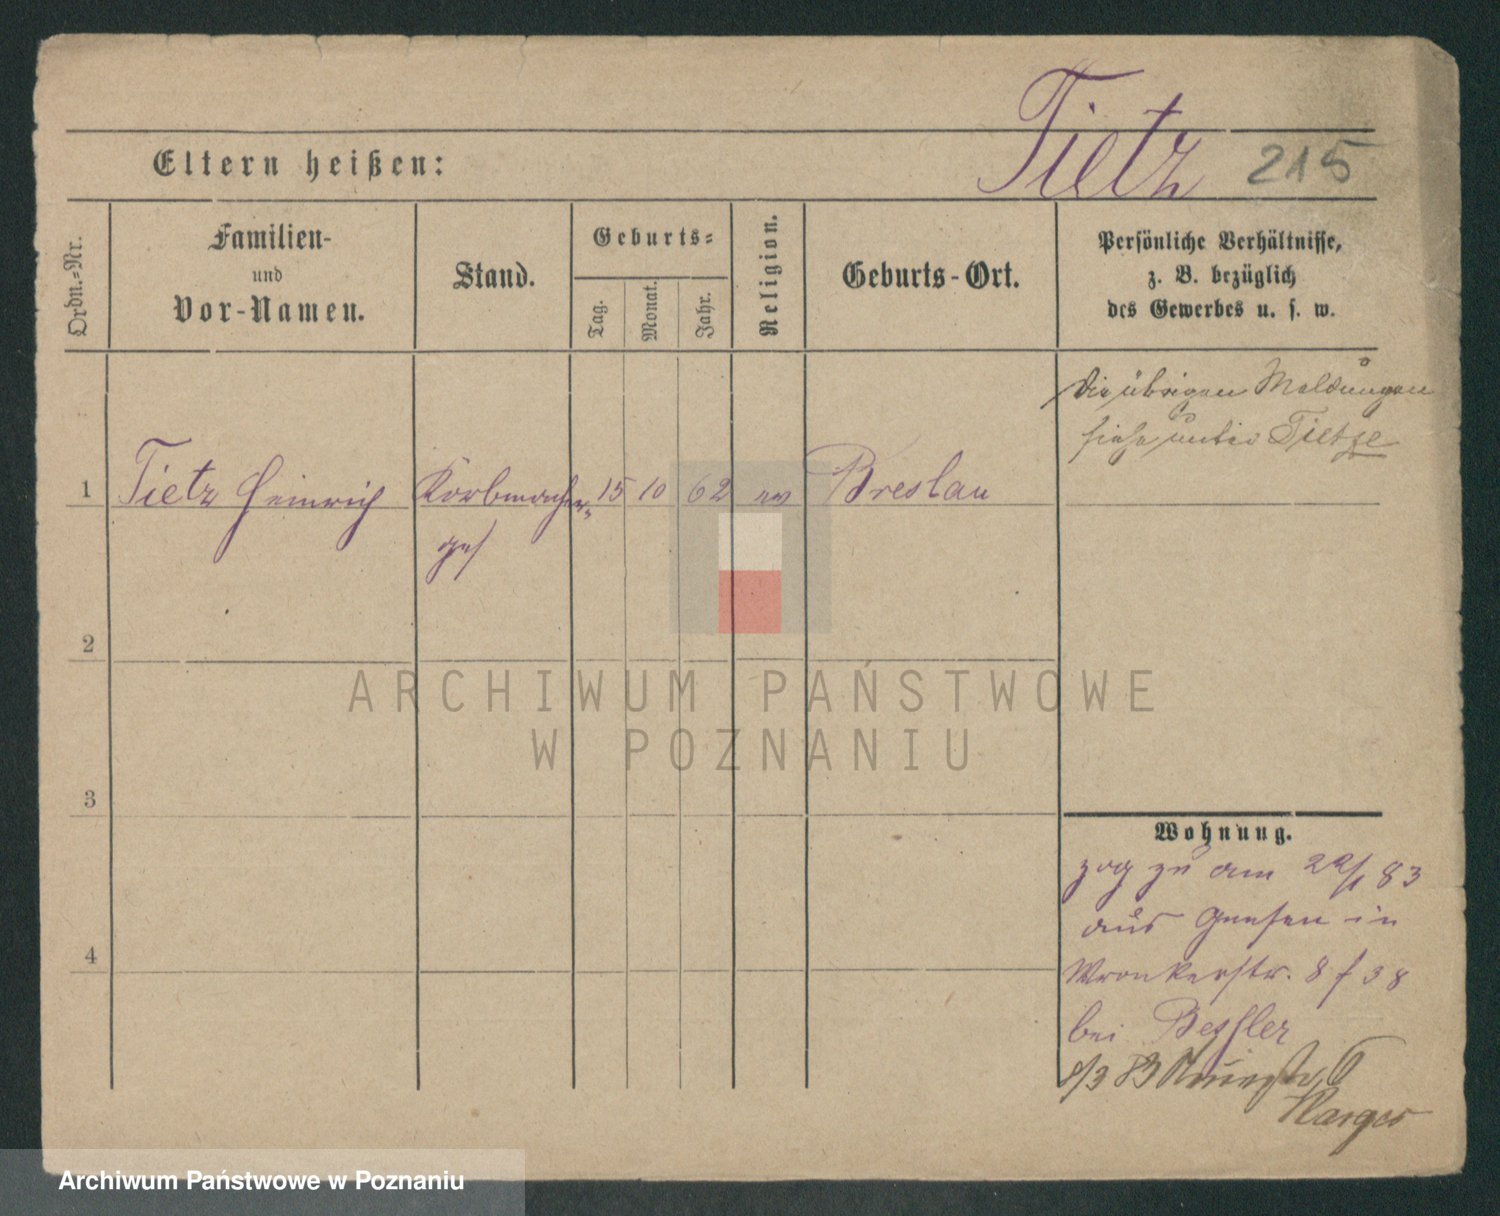 Tietz 215
Eltern heißen:
Ordn.-Nr.
Familien-
und
Vor-Namen.
Stand.
Geburts-
Tag.
Monat.
Jahr.
Religion.
Geburts-Ort.
Persönliche Verhältnisse,
z. B. bezüglich
des Gewerbes u. s. w.
die übrigen Meldungen
siehe unter Tietze
1 Tietz Heinrich Korbmacher- 15 10 62 ev Breslau
ges
2
3
4
Wohnung.
zog zu am 22/1 83
aus Gnesen in
Wronkerstr. 8 f 38
bei
ARCHIWUM PAŃSTWOWE
W POZNANIU
Archiwum Państwowe w Poznaniu